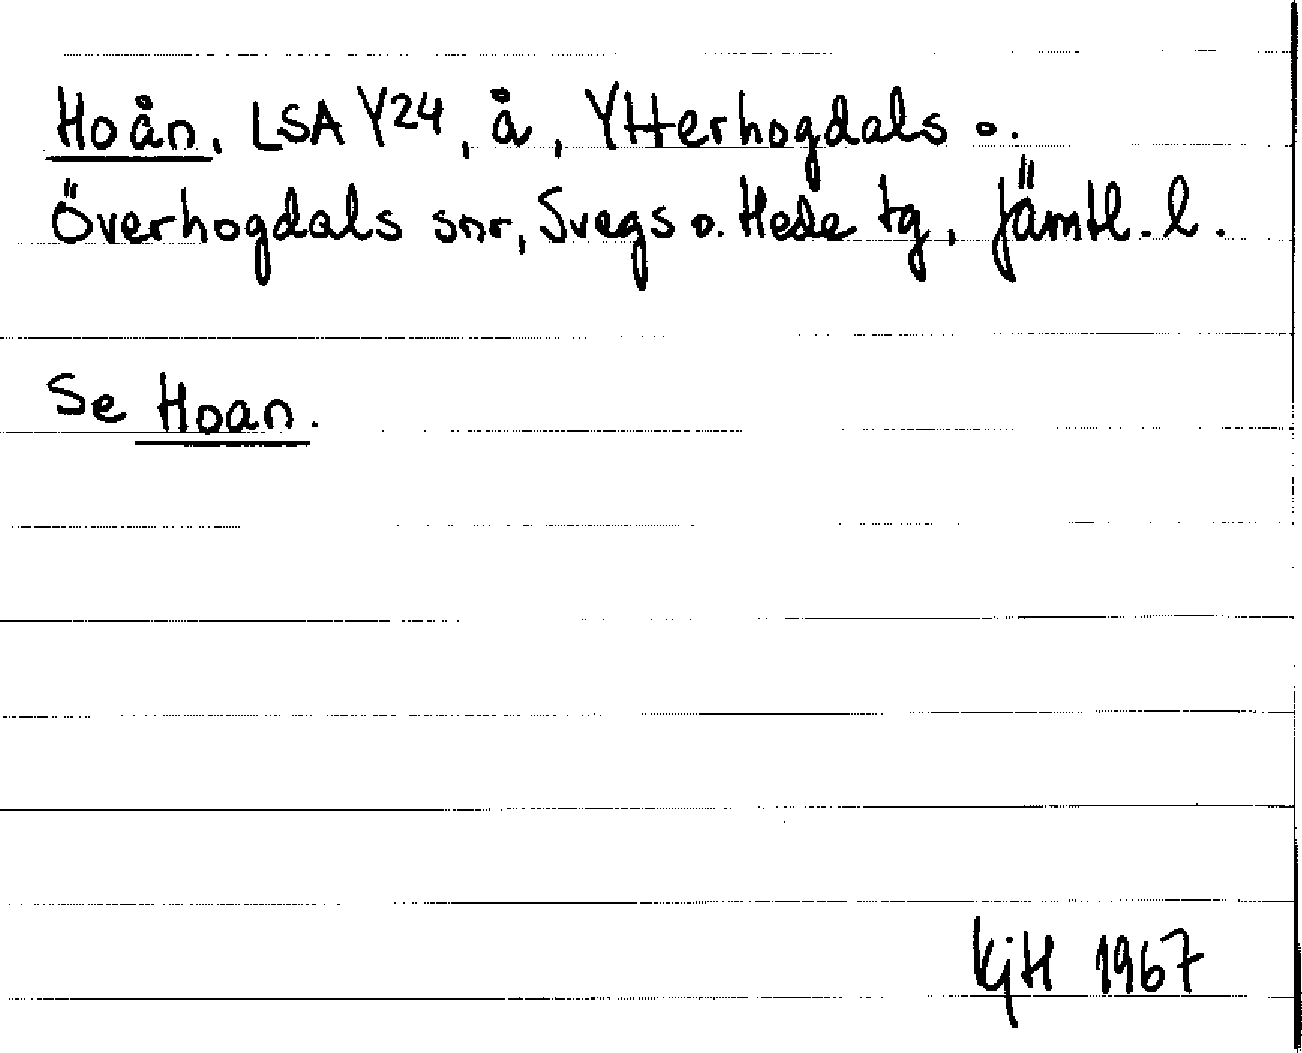 Hoån. LSA Y24, å, Ytterhogdals o.
Överhogdals snr, Svegs o. Hede tg, Jämtl. l.
Se Hoan.
KjH 1967